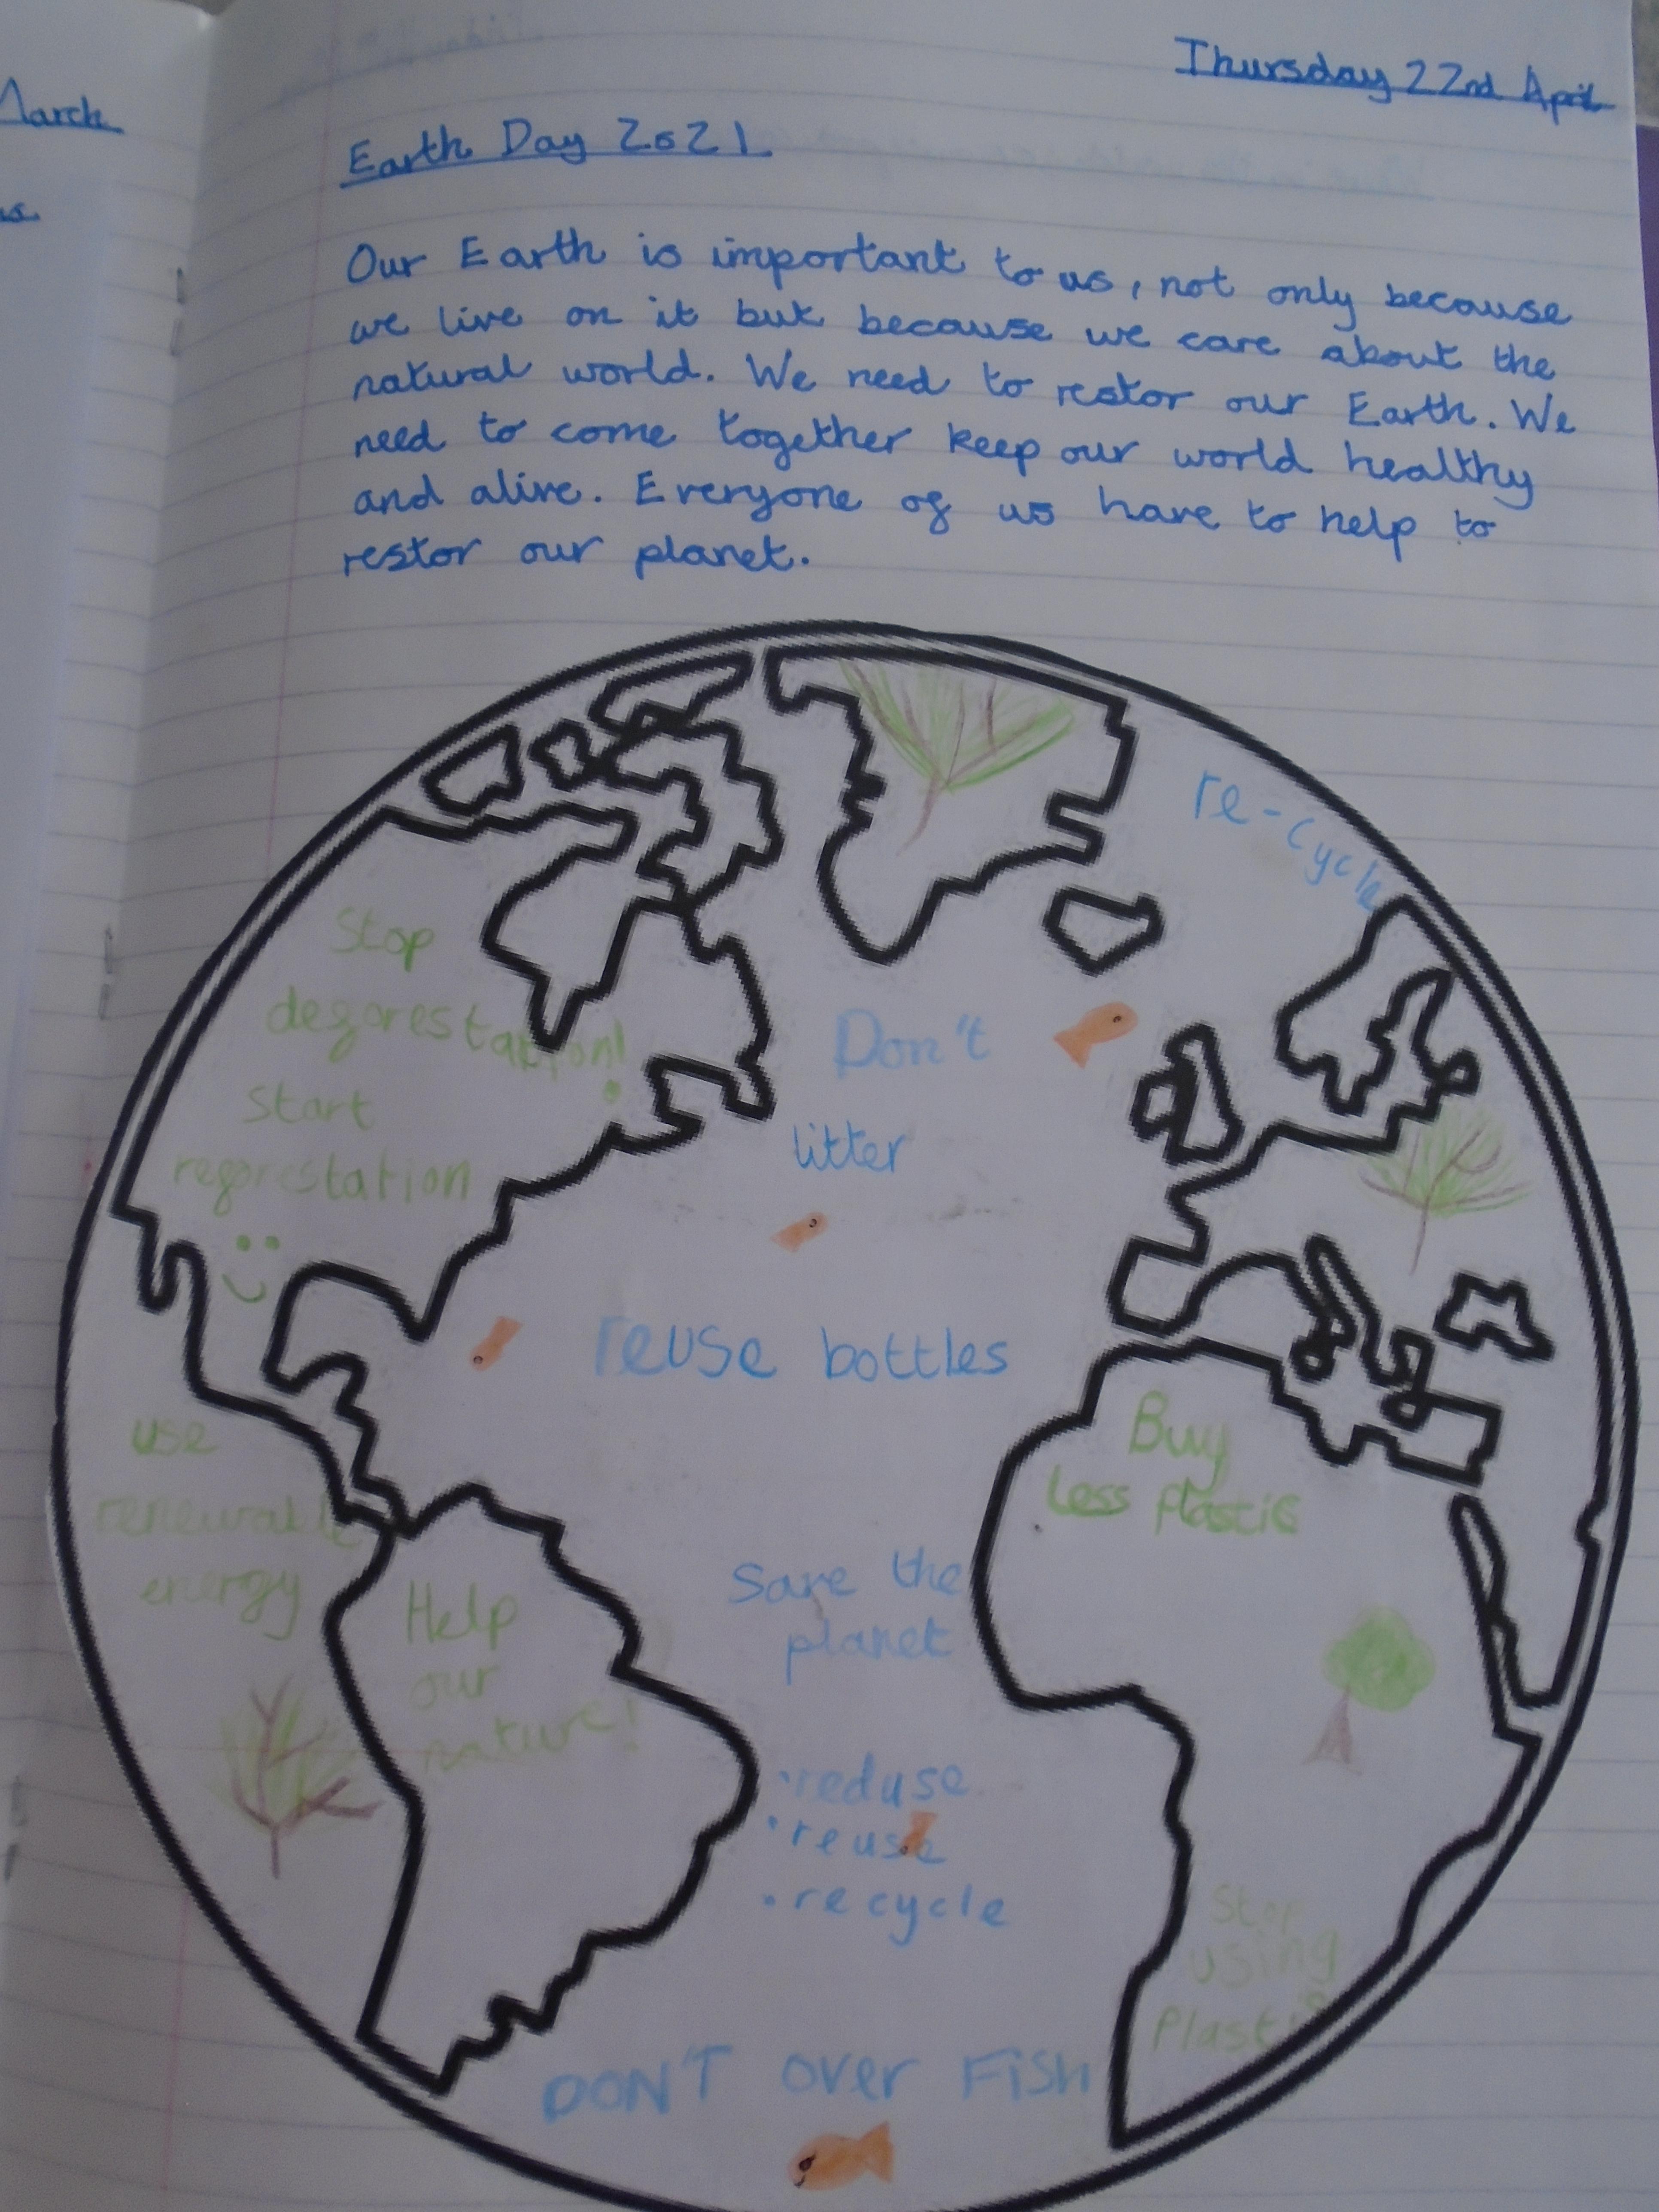 March
Thursday 22nd April
Earth Day 2021
Our Earth is important to us, not only because
we live on it but because we care about the
natural world. We need to restor our Earth. We
need to come together keep our world healthy
and alive. Everyone of us have to help to
restor our planet.
re-cycle
Stop
deforestation!
Start
reforestation
Don't
litter
reuse bottles
Buy
Less Plastic
use
renewable
energy
Help
our
nature!
Save the
planet
·reduse
·reuse
·recycle
Stop
using
Plastic
DON'T over FiSh